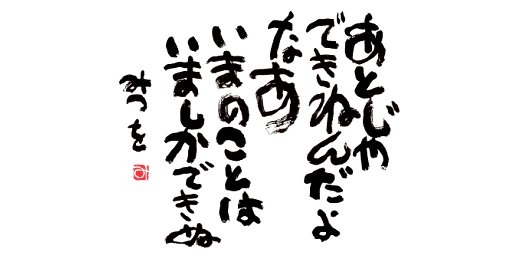 あとじゃ
できねんだよ
なあ
いまのことは
いましかできぬ
みつを
み